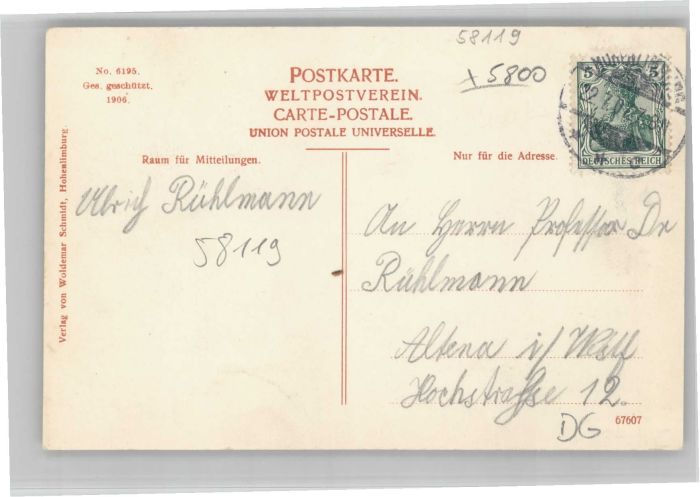 58119
No. 6195.
Ges. geschützt.
1906.
POSTKARTE.
WELTPOSTVEREIN.
CARTE-POSTALE.
UNION POSTALE UNIVERSELLE.
x 5800
5 5
DEUTSCHES REICH
Raum für Mitteilungen.
Nur für die Adresse.
Ulrich Rühlmann
58119
An Herrn Professor Dr
Rühlmann
Altena i/ Westf
Hochstraße 12.
DG
67607
Verlag von Woldemar Schmidt, Hohenlimburg.